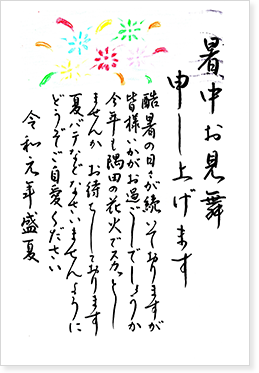 暑中お見舞
申し上げます
酷暑の日々が続いておりますが
皆様いかがお過ごしでしょうか
今年も隅田の花火でスカッとし
ませんか お待ちしております
夏バテなどなさいませんように
どうぞご自愛ください
令和元年盛夏